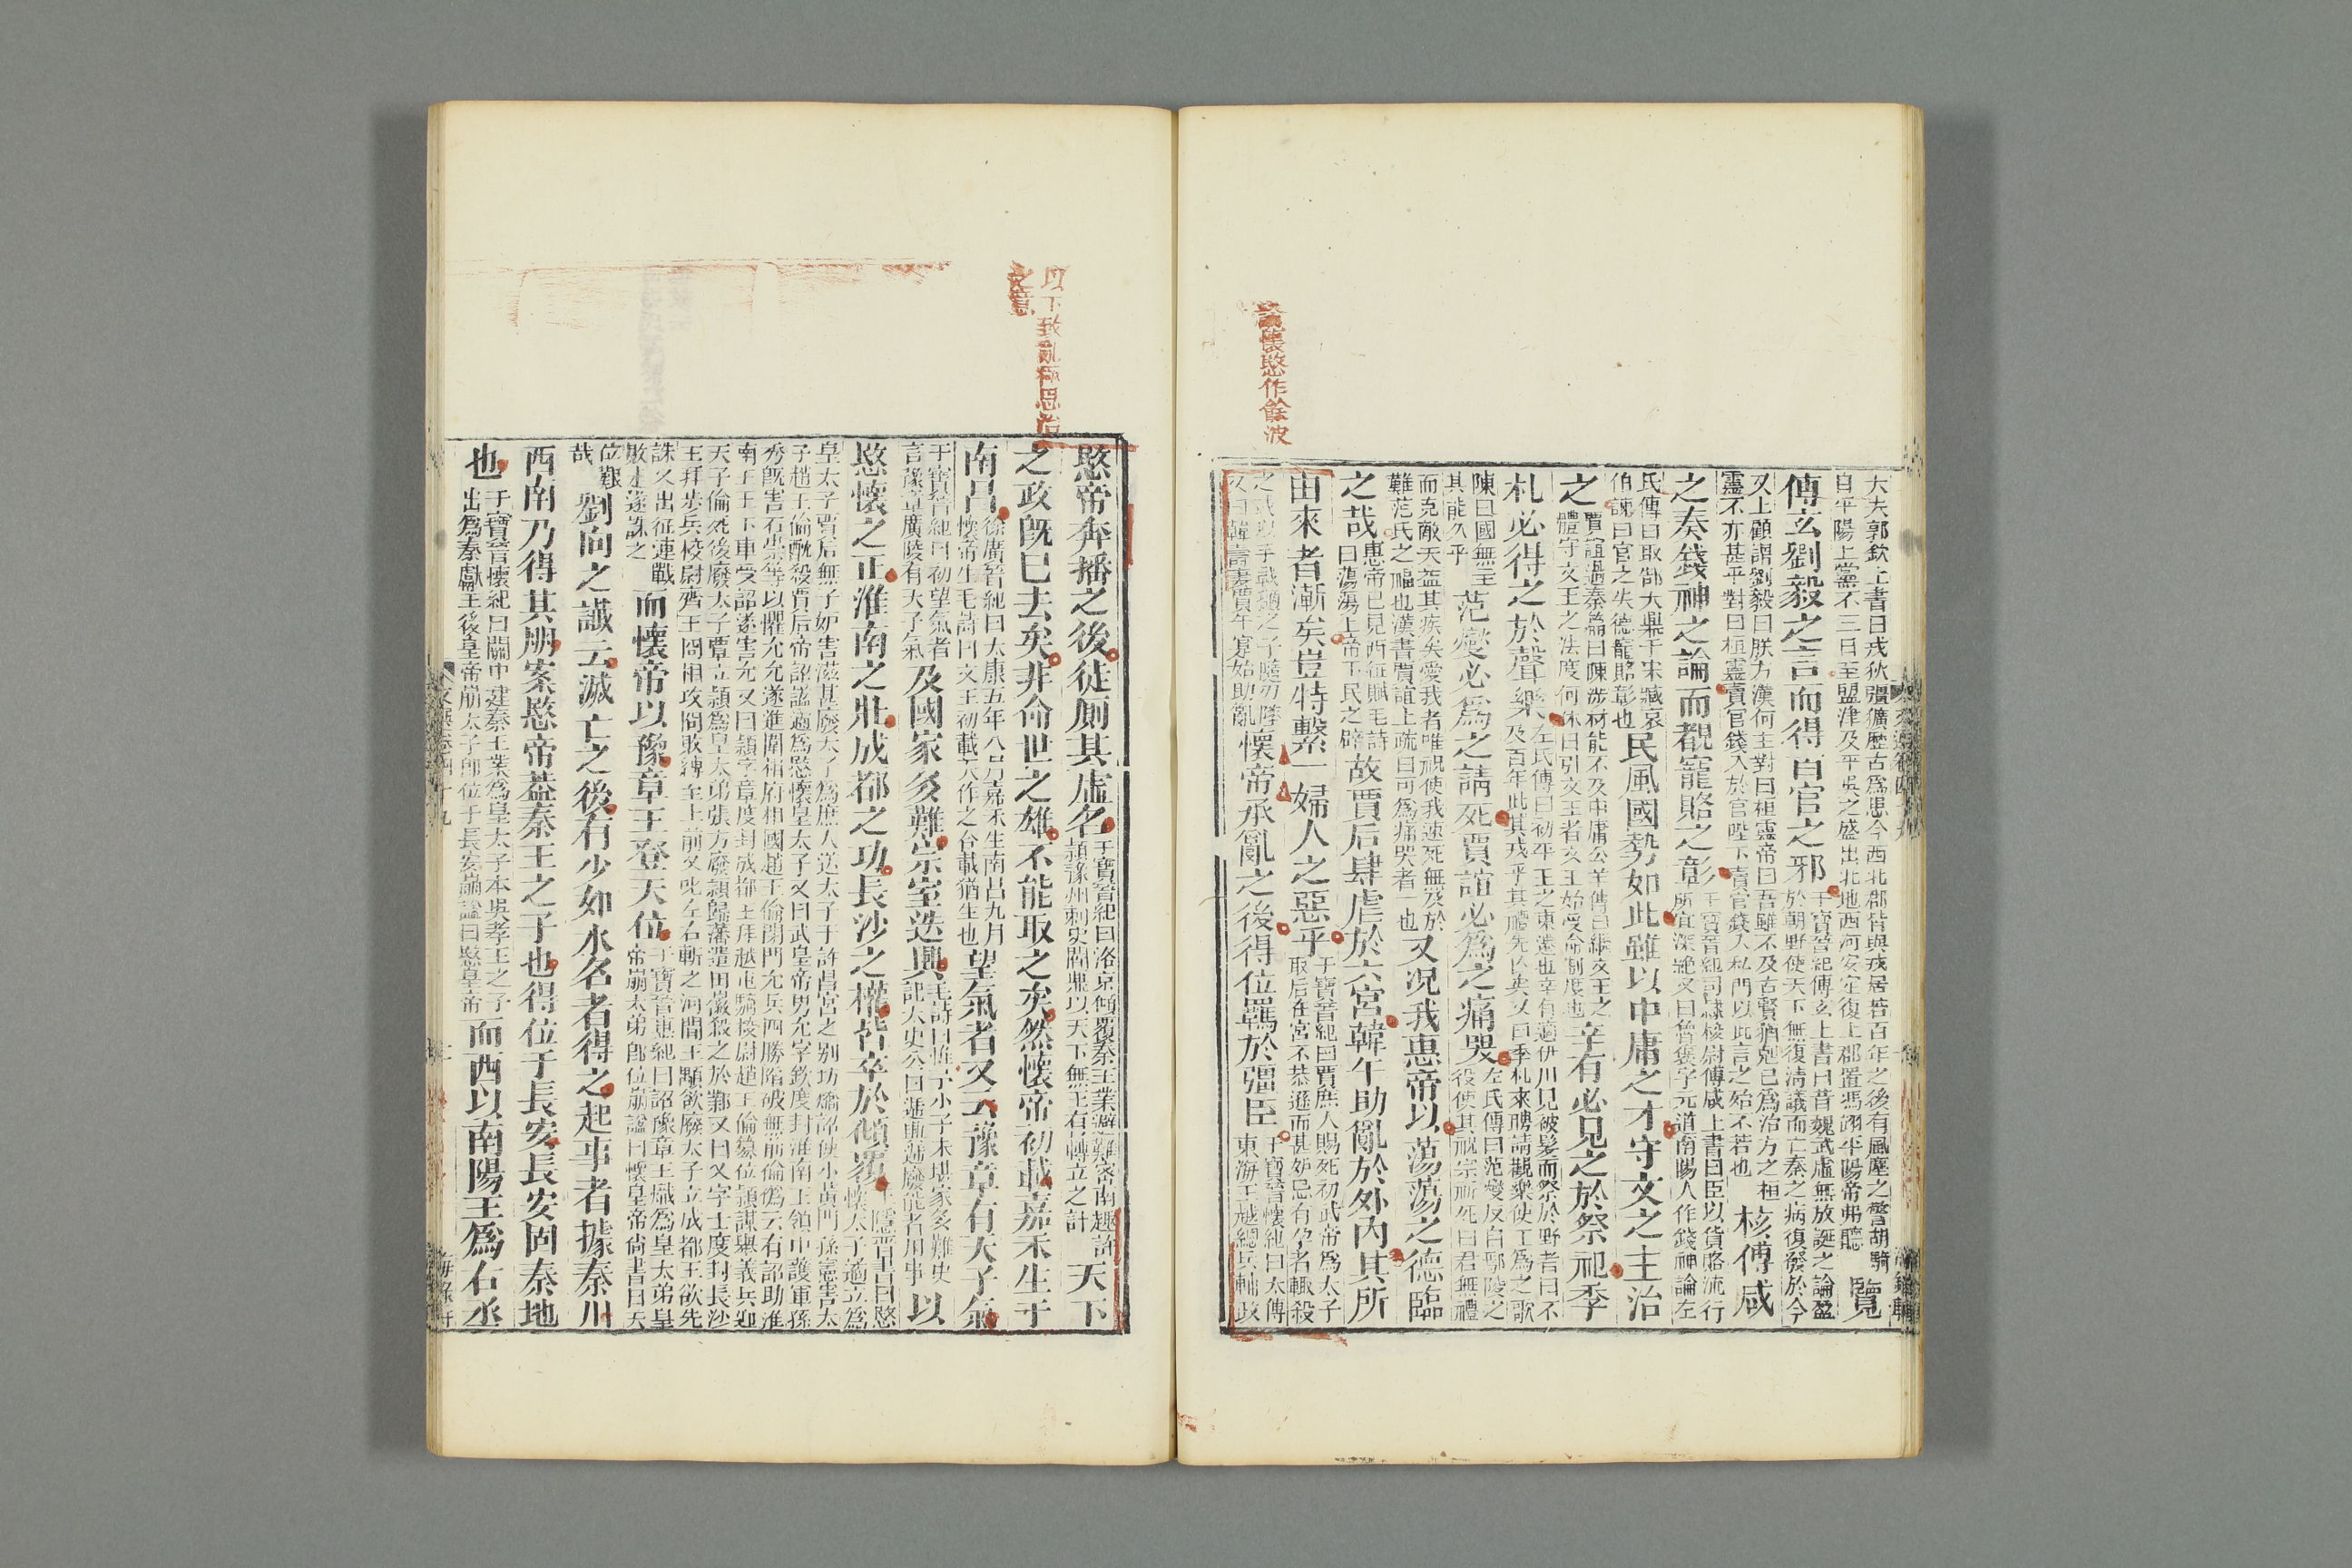 大夫郭欽上書曰戎狄彊獷歷古爲患今西北郡皆與戎居若百年之後有風塵之警胡騎自平陽上黨不三日至盟津及平吳之盛出北地西河安定復上郡置馮翊平陽帝弗聽覽
傅玄劉毅之言而得百官之邪干寶晉紀傅玄上書曰昔魏武虛無放誕之論盈於朝野使天下無復清議而亡秦之病復發於今
又上顧謂劉毅曰朕方漢何主對曰桓靈帝曰吾雖不及古賢猶剋己爲治方之桓靈不亦甚乎對曰桓靈賣官錢入於官陛下賣官錢入私門以此言之殆不若也核傅咸
之奏錢神之論而覩寵賂之彰干寶晉紀司隸校尉傅咸上書曰臣以貨賂流行所宜深絕又曰魯襃字元道南陽人作錢神論左
氏傳曰取郜大鼎于宋臧哀伯諫曰官之失德寵賂彰也民風國勢如此雖以中庸之才守文之主治
之賈誼過秦論曰陳涉材能不及中庸公羊傳曰繼文王之體守文王之法度何休曰引文王者文王始受命制度也辛有必見之於祭祀季
札必得之於聲樂左氏傳曰初平王之東遷也辛有適伊川見被髮而祭於野者曰不及百年此其戎乎其禮先亡矣又曰季札來聘請觀樂使工爲之歌
陳曰國無主其能久乎范燮必爲之請死賈誼必爲之痛哭左氏傳曰范燮反自鄢陵之役使其祝宗祈死曰君無禮
而克敵天益其疾矣愛我者唯祝使我速死無及於難范氏之福也漢書賈誼上疏曰可爲痛哭者一也又況我惠帝以蕩蕩之德臨
之哉惠帝已見西征賦毛詩曰蕩蕩上帝下民之辟故賈后肆虐於六宮韓午助亂於外內其所
由來者漸矣豈特繫一婦人之惡乎干寶晉紀曰賈庶人賜死初武帝爲太子取后在宮不恭遜而甚妒忌有孕者輒殺
之或以手戟擿之子隨刃墜又曰韓壽妻賈午寔始助亂懷帝承亂之後得位羈於彊臣干寶晉懷紀曰太傅東海王越總兵輔政
懷愍作餘波
以下致亂極思治
之意
愍帝奔播之後徒厠其虛名干寶晉紀曰洛京傾覆秦王業避難密南趨許潁豫州刺史閻鼎以天下無主有輔立之計天下
之政既已去矣非命世之雄不能取之矣然懷帝初載嘉禾生于
南昌徐廣晉紀曰太康五年八月嘉禾生南昌九月懷帝生毛詩曰文王初載天作之合載猶生也望氣者又云豫章有天子氣
干寶晉紀曰初望氣者言豫章廣陵有天子氣及國家多難宗室迭興毛詩曰惟予小子未堪家多難史記太史公曰遞興遞廢能者用事以
愍懷之正淮南之壯成都之功長沙之權皆卒於傾覆王隱晉書曰愍懷太子遹立爲
皇太子賈后無子妒害滋甚廢太子爲庶人送太子于許昌宮之别坊矯詔使小黃門孫慮害太子趙王倫酖殺賈后帝詔謚遹爲愍懷皇太子又曰武皇帝男允字欽度封淮南王領中護軍孫
秀既害石崇等以懼允允遂進圍相府相國趙王倫閉門允兵四勝隋破無前倫僞云有詔助淮南王王下車受詔遂害允又曰穎字章度封成都王拜越屯騎校尉趙王倫篡位穎謀舉義兵迎
天子倫死後廢太子覃立穎爲皇太弟張方廢穎歸藩遣田徽殺之於鄴又曰乂字士度封長沙王拜步兵校尉齊王冏相攻冏敗縛至上前乂叱左右斬之河間王顒欲廢太子立成都王欲先
誅乂出征連戰敗走遂誅之而懷帝以豫章王登天位干寶晉惠紀曰詔豫章王熾爲皇太弟皇帝崩太弟即位崩謚曰懷皇帝尚書曰天
位艱哉劉向之讖云滅亡之後有少如水名者得之起事者據秦川
西南乃得其朋案愍帝蓋秦王之子也得位于長安長安固秦地
也干寶晉懷紀曰關中建秦王業爲皇太子本吳孝王之子出爲秦獻王後皇帝崩太子即位于長安崩謚曰愍皇帝而西以南陽王爲右丞